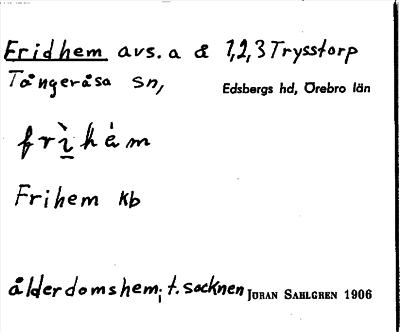 Fridhem avs. a å 1,2,3 Trysstorp
Tångeråsa sn, Edsbergs hd, Örebro län
frì̲hám
Frihem kb
ålderdomshem; t. socknen Jöran Sahlgren 1906